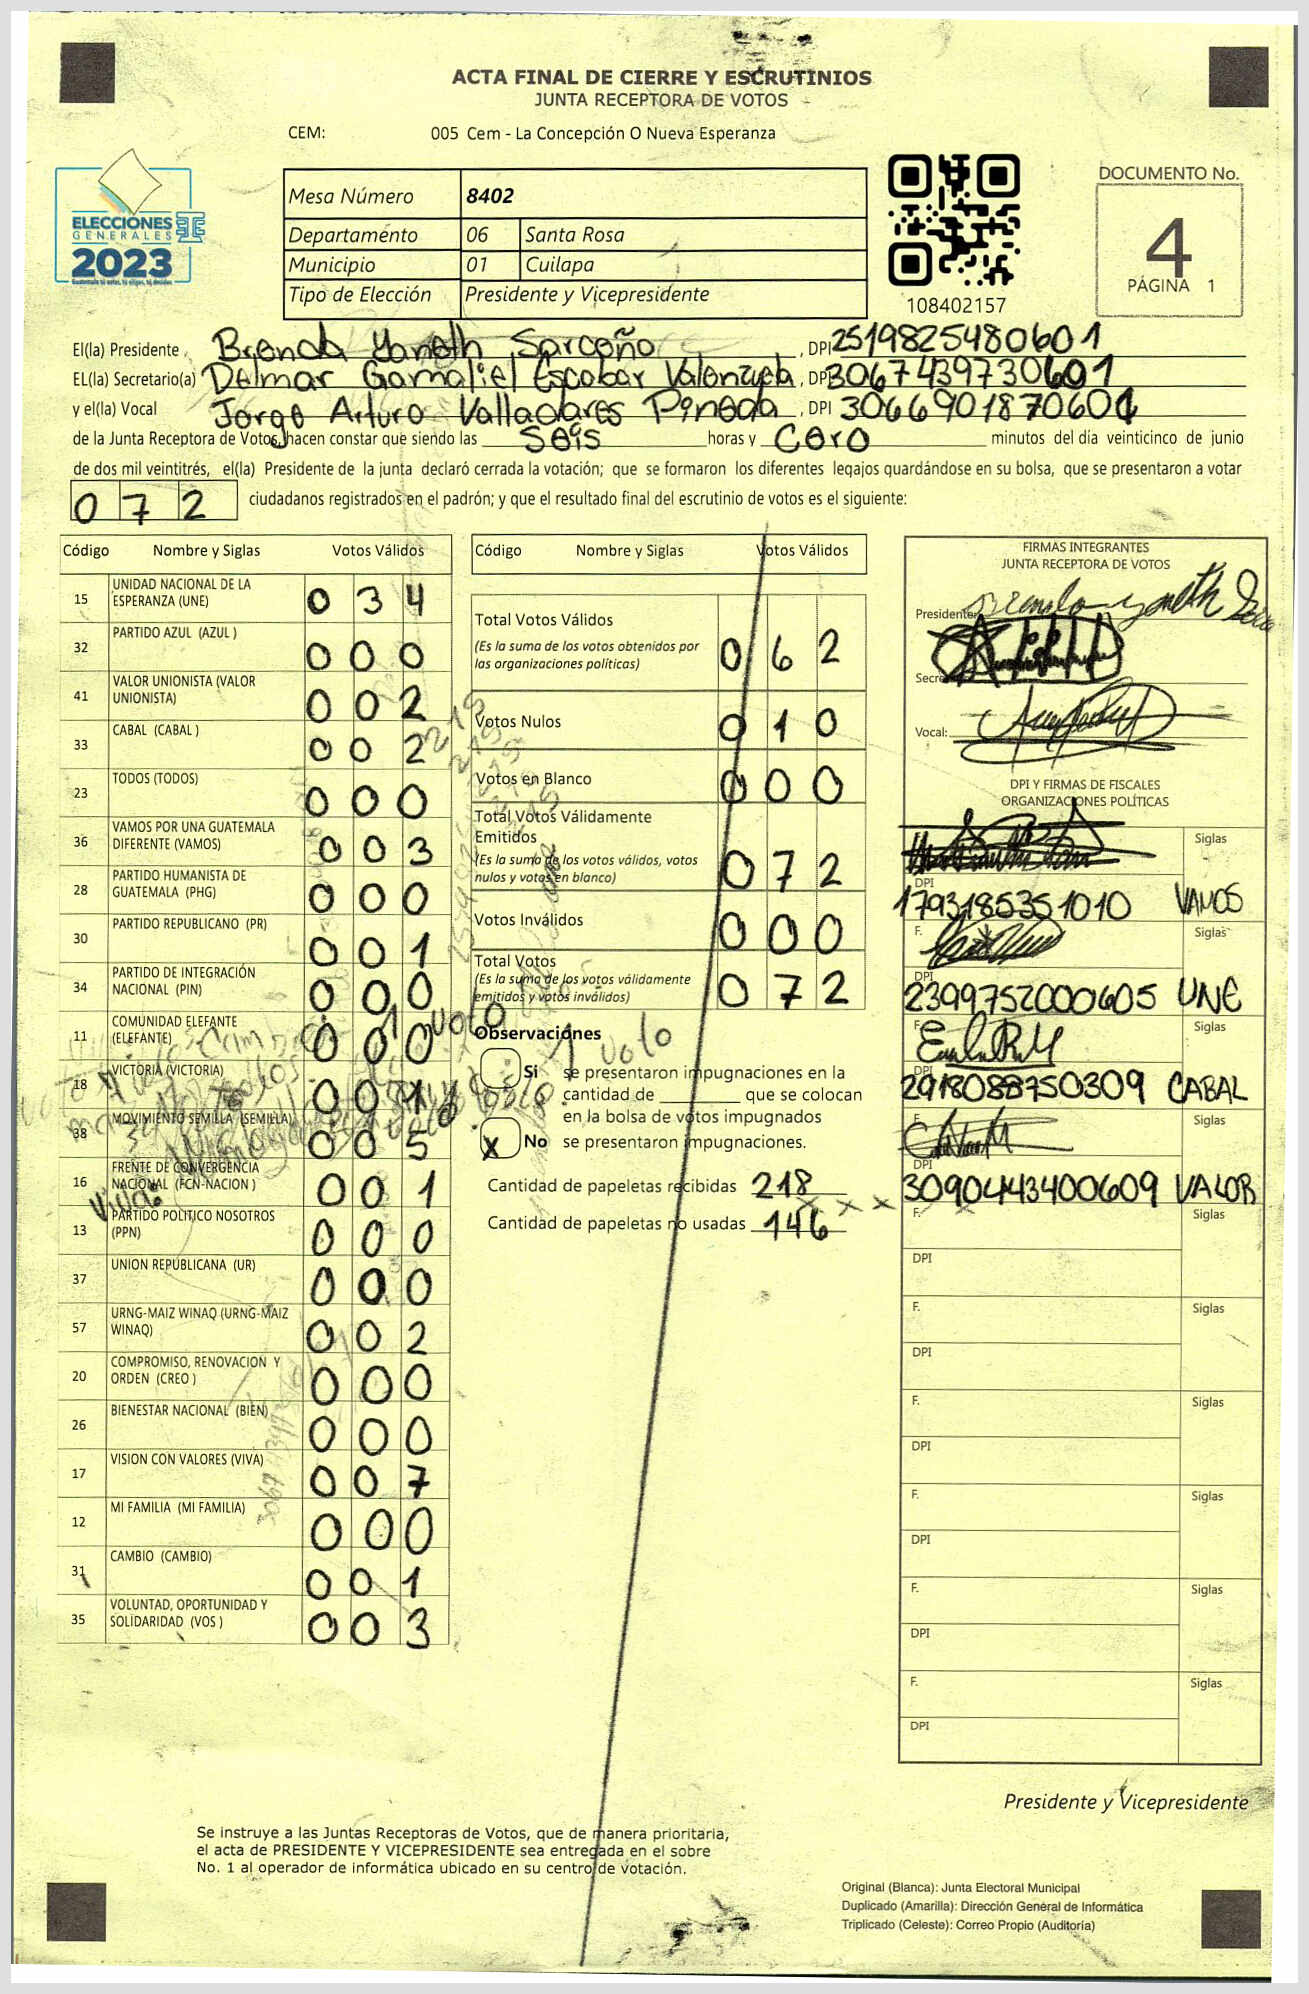 ACTA FINAL DE CIERRE Y ESCRUTINIOS
JUNTA RECEPTORA DE VOTOS
CEM: 005 Cem - La Concepción O Nueva Esperanza
ELECCIONES
GENERALES
2023
Mesa Número 8402
Departamento 06 Santa Rosa
Municipio 01 Cuilapa
Tipo de Elección Presidente y Vicepresidente
108402157
DOCUMENTO No.
4
PÁGINA 1
El(la) Presidente Brenda Yaneth Sarceño, DPI 2519825480601
EL(la) Secretario(a) Delmar Gamaliel Escobar Valenzuela, DPI 3067439730601
y el(la) Vocal Jorge Arturo Valladares Pineda, DPI 3066901870601
de la Junta Receptora de Votos, hacen constar que siendo las Seis horas y Cero minutos del día veinticinco de junio
de dos mil veintitrés, el(la) Presidente de la junta declaró cerrada la votación; que se formaron los diferentes legajos guardándose en su bolsa, que se presentaron a votar
072 ciudadanos registrados en el padrón; y que el resultado final del escrutinio de votos es el siguiente:
Código Nombre y Siglas Votos Válidos
15 UNIDAD NACIONAL DE LA ESPERANZA (UNE) 034
32 PARTIDO AZUL (AZUL ) 000
41 VALOR UNIONISTA (VALOR UNIONISTA) 002
33 CABAL (CABAL ) 002
23 TODOS (TODOS) 000
36 VAMOS POR UNA GUATEMALA DIFERENTE (VAMOS) 003
28 PARTIDO HUMANISTA DE GUATEMALA (PHG) 000
30 PARTIDO REPUBLICANO (PR) 001
34 PARTIDO DE INTEGRACIÓN NACIONAL (PIN) 000
11 COMUNIDAD ELEFANTE (ELEFANTE) 000
18 VICTORIA (VICTORIA) 001
38 MOVIMIENTO SEMILLA (SEMILLA) 005
16 FRENTE DE CONVERGENCIA NACIONAL (FCN-NACION ) 001
13 PARTIDO POLITICO NOSOTROS (PPN) 000
37 UNION REPUBLICANA (UR) 000
57 URNG-MAIZ WINAQ (URNG-MAIZ WINAQ) 002
20 COMPROMISO, RENOVACION Y ORDEN (CREO ) 000
26 BIENESTAR NACIONAL (BIEN) 000
17 VISION CON VALORES (VIVA) 007
12 MI FAMILIA (MI FAMILIA) 000
31 CAMBIO (CAMBIO) 001
35 VOLUNTAD, OPORTUNIDAD Y SOLIDARIDAD (VOS ) 003
Código Nombre y Siglas Votos Válidos
Total Votos Válidos 062
(Es la suma de los votos obtenidos por
las organizaciones políticas)
Votos Nulos 010
Votos en Blanco 000
Total Votos Válidamente
Emitidos 072
(Es la suma de los votos válidos, votos
nulos y votos en blanco)
Votos Inválidos 000
Total Votos 072
(Es la suma de los votos válidamente
emitidos y votos inválidos)
1 voto
Observaciones
1 voto
Si se presentaron impugnaciones en la
cantidad de ________ que se colocan
en la bolsa de votos impugnados
x No se presentaron impugnaciones.
Cantidad de papeletas recibidas 218
Cantidad de papeletas no usadas 146
Viva
FIRMAS INTEGRANTES
JUNTA RECEPTORA DE VOTOS
Presidente:
Vocal:
DPI Y FIRMAS DE FISCALES
ORGANIZACIONES POLÍTICAS
Siglas
DPI
1793185351010 VAMOS
F. Siglas
DPI
2399752000605 UNE
F. Siglas
2918088750309 CABAL
F. Siglas
DPI
3090443400609 VALOR
F. Siglas
DPI
F. Siglas
DPI
F. Siglas
DPI
F. Siglas
DPI
F. Siglas
DPI
F. Siglas
DPI
Presidente y Vicepresidente
Se instruye a las Juntas Receptoras de Votos, que de manera prioritaria,
el acta de PRESIDENTE Y VICEPRESIDENTE sea entregada en el sobre
No. 1 al operador de informática ubicado en su centro de votación.
Original (Blanca): Junta Electoral Municipal
Duplicado (Amarilla): Dirección General de Informática
Triplicado (Celeste): Correo Propio (Auditoría)